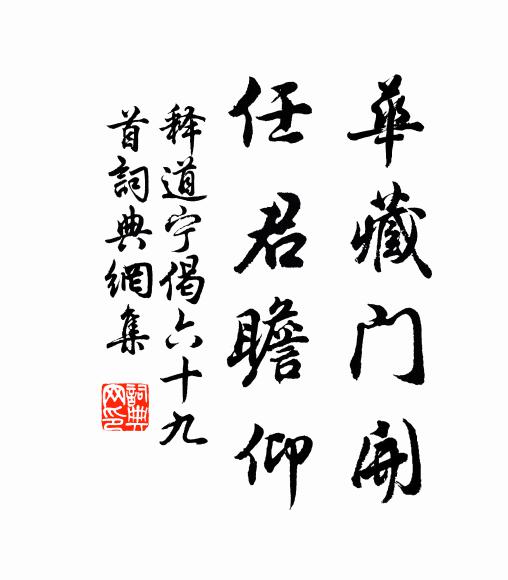 華藏门開
任君瞻仰
释道宁偈六十九
首詞典網集
詞典
网印